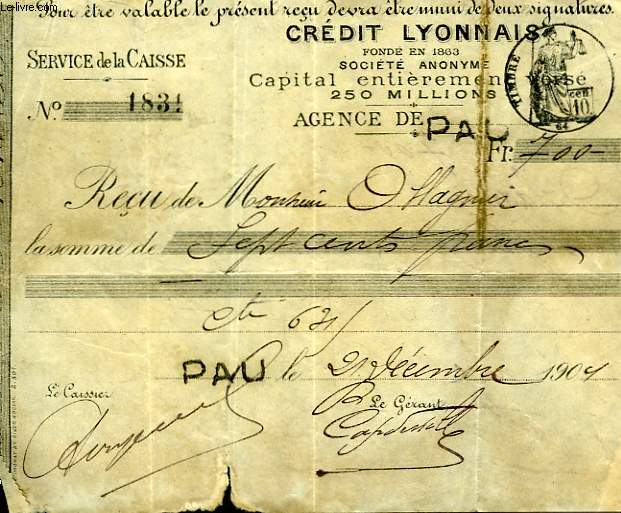 Pour être valable le présent reçu devra être muni de deux signatures.
CRÉDIT LYONNAIS
FONDÉ EN 1863
SOCIÉTÉ ANONYME
Capital entièrement versé
250 MILLIONS
SERVICE de la CAISSE
No. 1831
TIMBRE
10
AGENCE DE PAU
Fr. 700 -
Reçu de Monsieur Ollagnier
la somme de Sept cents francs
PAU le 21 décembre 1904
Le Caissier
Le Gérant
Le-livre.com